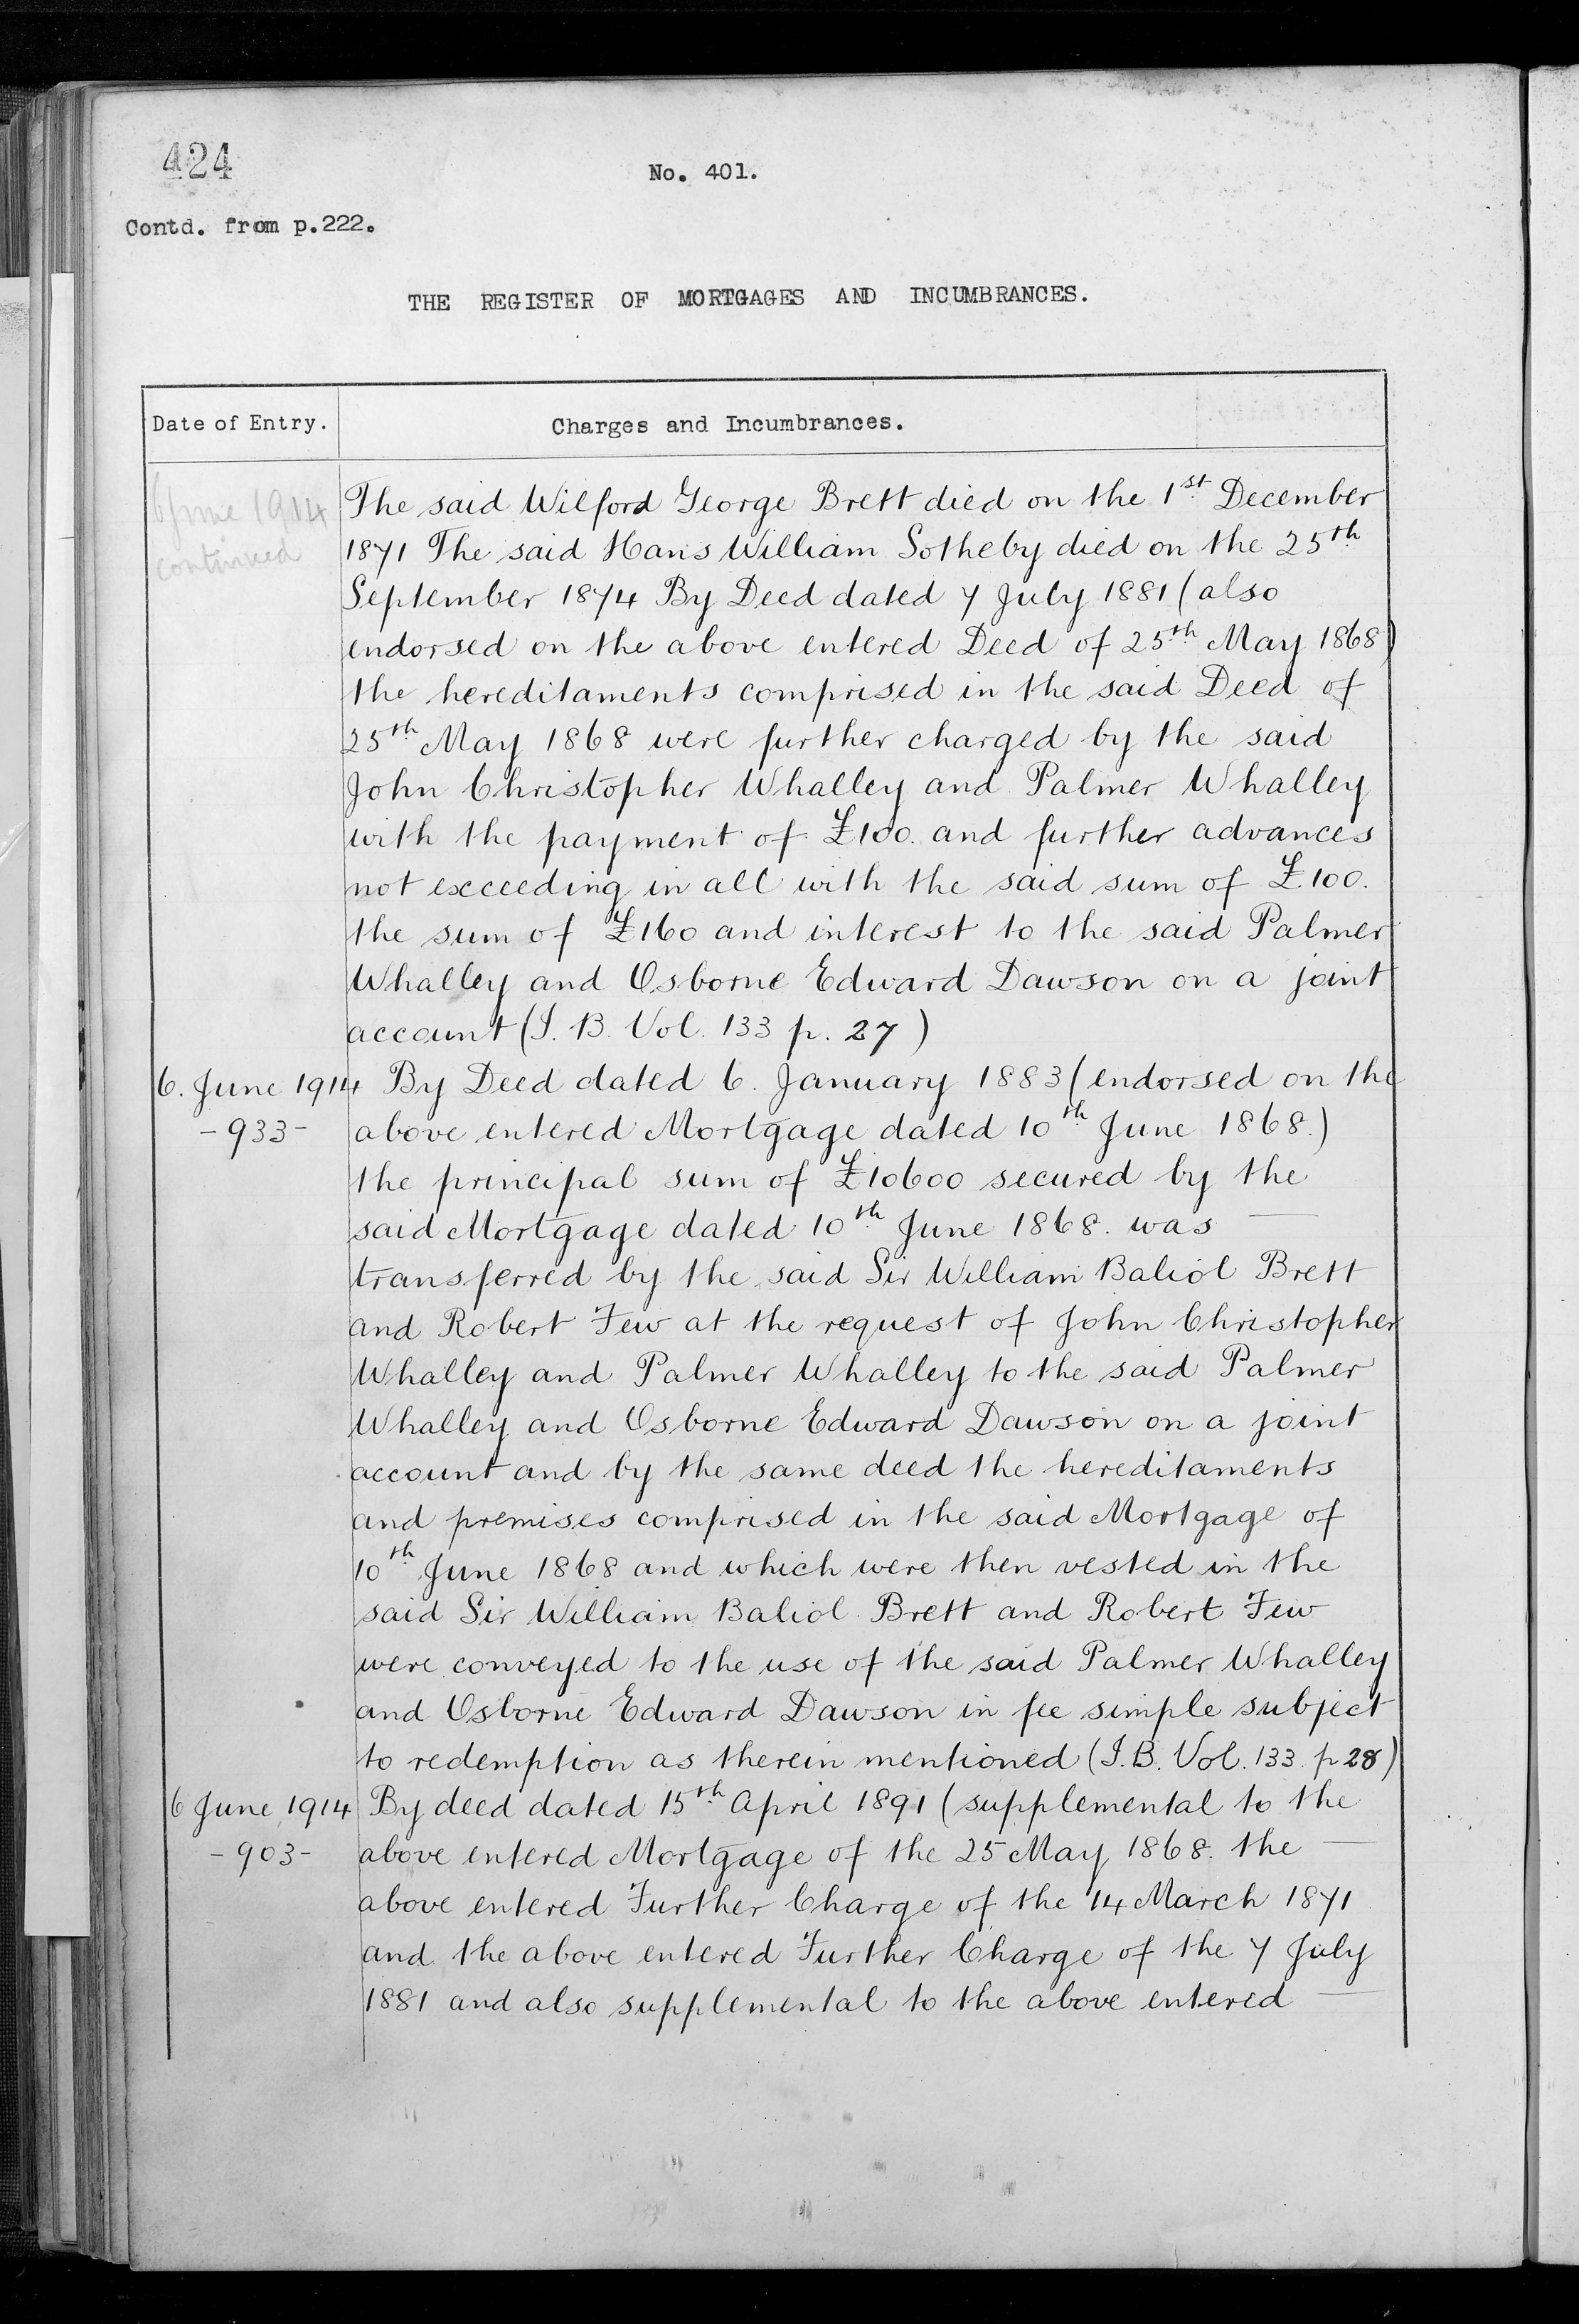 424
No. 401.
Contd. from p.222.
THE REGISTER OF MORTGAGES AND INCUMBRANCES.
Date of Entry.
Charges and Incumbrances.
6 June 1914
continued
The said Wilford George Brett died on the 1st December
1871 The said Hans William Sotheby died on the 25th
September 1874 By Deed dated 7 July 1881 (also
endorsed on the above entered Deed of 25th May 1868)
the hereditaments comprised in the said Deed of
25th May 1868 were further charged by the said
John Christopher Whalley and Palmer Whalley
with the payment of £100. and further advances
not exceeding in all with the said sum of £100.
the sum of £160 and interest to the said Palmer
Whalley and Osborne Edward Dawson on a joint
account (I. B. Vol. 133 p. 27)
6. June 1914 By Deed dated 6. January 1883 (endorsed on the
-933- above entered Mortgage dated 10th June 1868.)
the principal sum of £10600 secured by the
said Mortgage dated 10th June 1868. was —
transferred by the said Sir William Baliol Brett
and Robert Few at the request of John Christopher
Whalley and Palmer Whalley to the said Palmer
Whalley and Osborne Edward Dawson on a joint
account and by the same deed the hereditaments
and premises comprised in the said Mortgage of
10th June 1868 and which were then vested in the
said Sir William Baliol Brett and Robert Few
were conveyed to the use of the said Palmer Whalley
and Osborne Edward Dawson in fee simple subject
to redemption as therein mentioned (I.B. Vol. 133. p 28)
6 June 1914 By deed dated 15th April 1891 (supplemental to the
-903- above entered Mortgage of the 25 May 1868. the —
above entered Further Charge of the 14 March 1871
and the above entered Further Charge of the 7 July
1881 and also supplemental to the above entered —